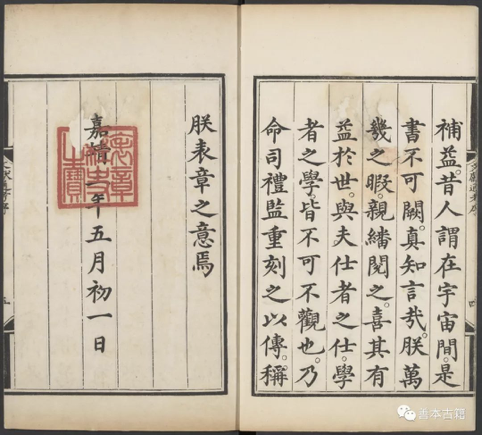 補益。昔人謂在宇宙間。是
書不可闕。真知言哉。朕萬
幾之暇。親繙閱之。喜其有
益於世。與夫仕者之仕。學
者之學。皆不可不觀也。乃
命司禮監重刻之以傳。稱
朕表章之意焉
嘉靖年五月初一日
表章經史之寶
善本古籍